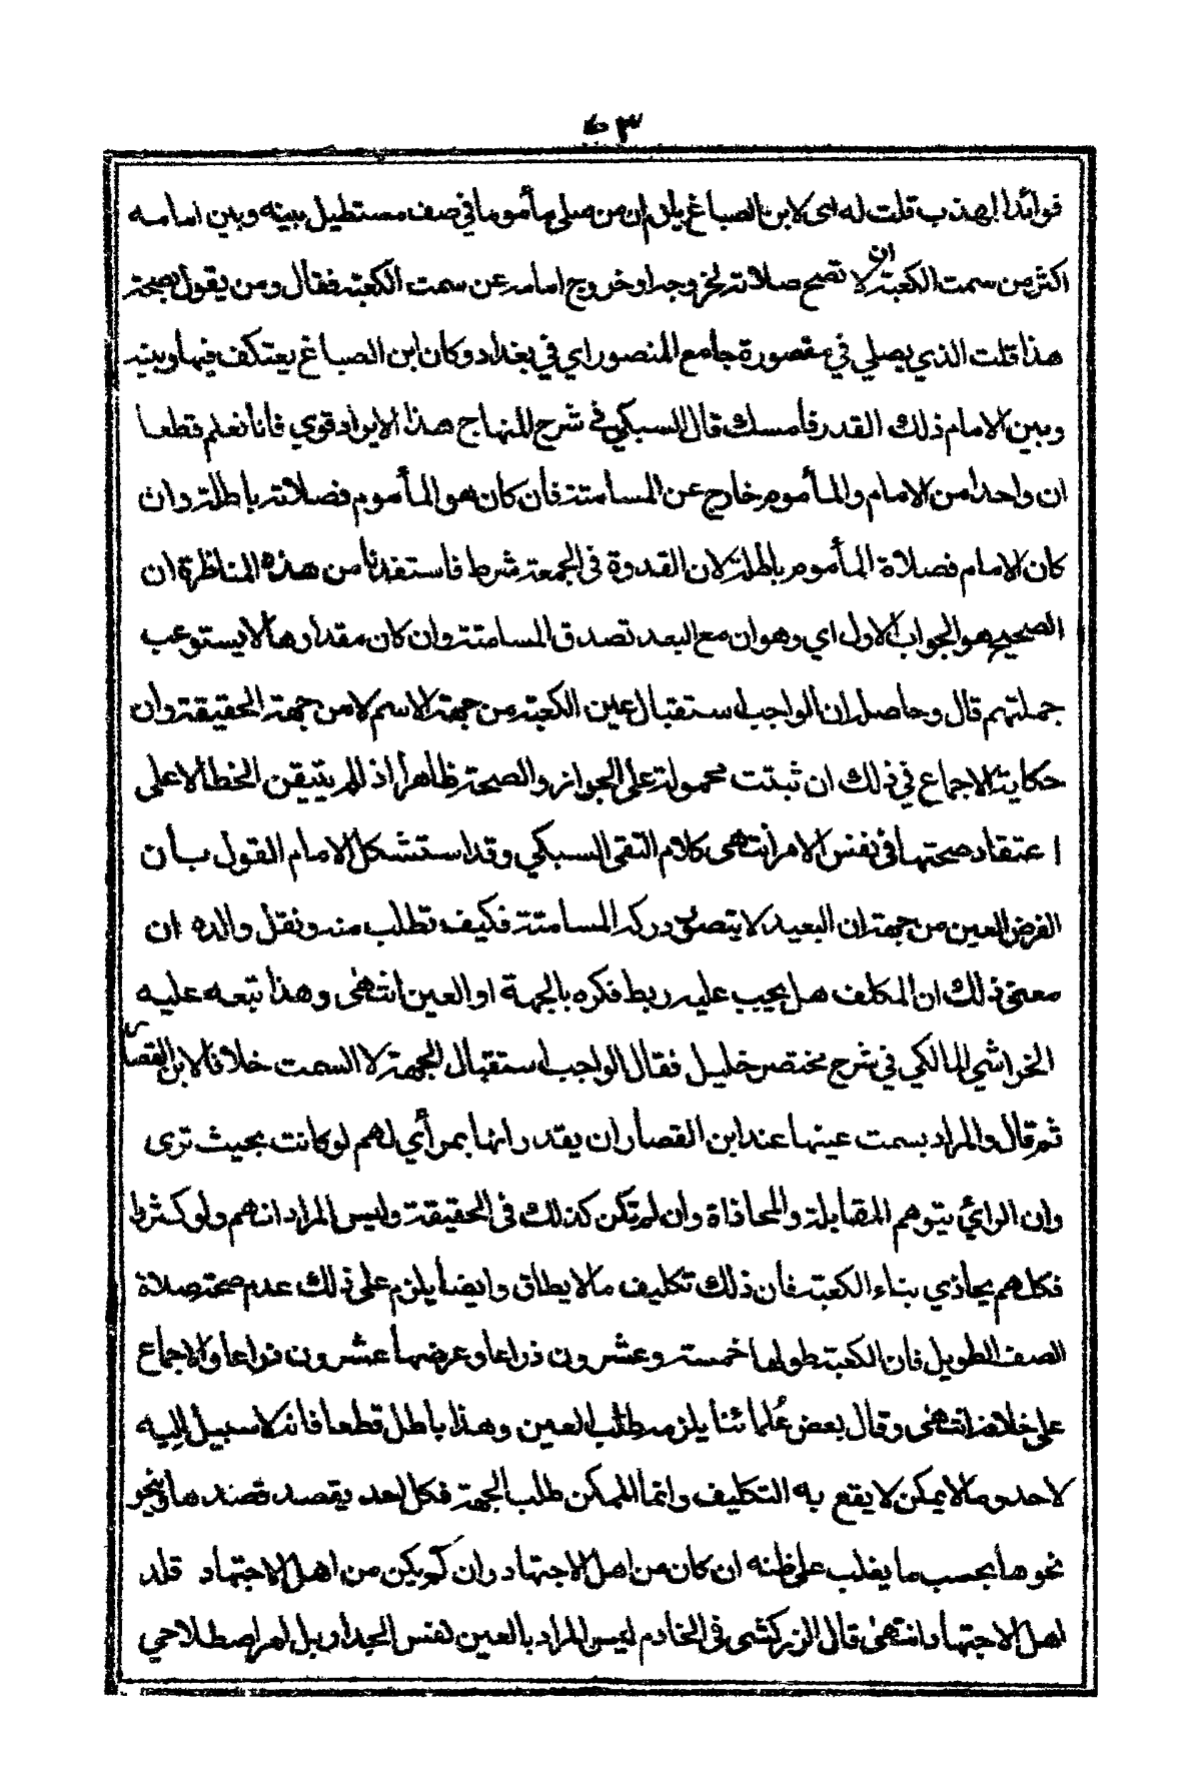 ٣٥
فوائد المهذب قلت له اى لابن الصباغ يلزم ان من صلى مأموما في صف مستطيل بينه وبين امامه
اكثر من سمت الكعبة ان لا تصح صلاته لخروجه او خروج امامه عن سمت الكعبة فقال ومن يقول بصحة
هذا قلت الذي يصلي في مقصورة جامع المنصور اي في بغداد وكان ابن الصباغ يعتكف فيها وبينه
وبين الامام ذلك القدر فأمسك قال السبكي في شرح المنهاج هذا الايراد قوي فانا نعلم قطعا
ان واحدا من الامام والمأموم خارج عن المسامتة فأن كان هو المأموم فصلاته باطلة وان
كان الامام فصلاة المأموم باطلة لان القدوة في الجمعة شرط فاستفدنا من هذه المناظرة ان
الصحيح هو الجواب الاول اي وهو ان مع البعد تصدق المسامتة وان كان مقدارها لا يستوعب
جملتهم قال وحاصله ان الواجب استقبال عين الكعبة من جهة الاسم لا من جهة الحقيقة وان
حكاية الاجماع في ذلك ان ثبتت محمولة على الجواز والصحة ظاهرا اذ لم يتيقن الخطأ لا على
اعتقاد صحتها في نفس الامر انتهى كلام التقى السبكي وقد استشكل الامام القول بأن
الفرض العين من جهة ان البعيد لا يتصور دركه المسامتة فكيف تطلب منه ونقل والده ان
معنى ذلك ان المكلف هل يجب عليه ربط فكره بالجهة او العين انتهى وهذا تبعه عليه
الخراشي المالكي في شرح مختصر خليل فقال الواجب استقبال الجهة لا السمت خلافا لابن القصار
ثم قال والمراد بسمت عينها عند ابن القصار ان يقدر انها بمرأي لهم لو كانت بحيث ترى
وان الرائي يتوهم المقابلة والمحاذاة وان لم تكن كذلك في الحقيقة وليس المراد انهم ولو كثروا
فكلهم يحاذي بناء الكعبة فأن ذلك تكليف ما لا يطاق وايضا يلزم على ذلك عدم صحة صلاة
الصف الطويل فان الكعبة طولها خمسة وعشرون ذراعا وعرضها عشرون ذراعا والاجماع
على خلافه انتهى وقال بعض علمائنا يلزمه طلب العين وهذا باطل قطعا فانه لا سبيل اليه
لاحد وما لا يمكن لا يقع به التكليف وانما الممكن طلب الجهة فكل احد يقصد قصدها وينحو
نحوها بحسب ما يغلب على ظنه ان كان من اهل الاجتهاد وان لم يكن من اهل الاجتهاد قلد
اهل الاجتهاد انتهى قال الزركشى في الخادم ليس المراد بالعين نفس الجدار بل امر اصطلاحي